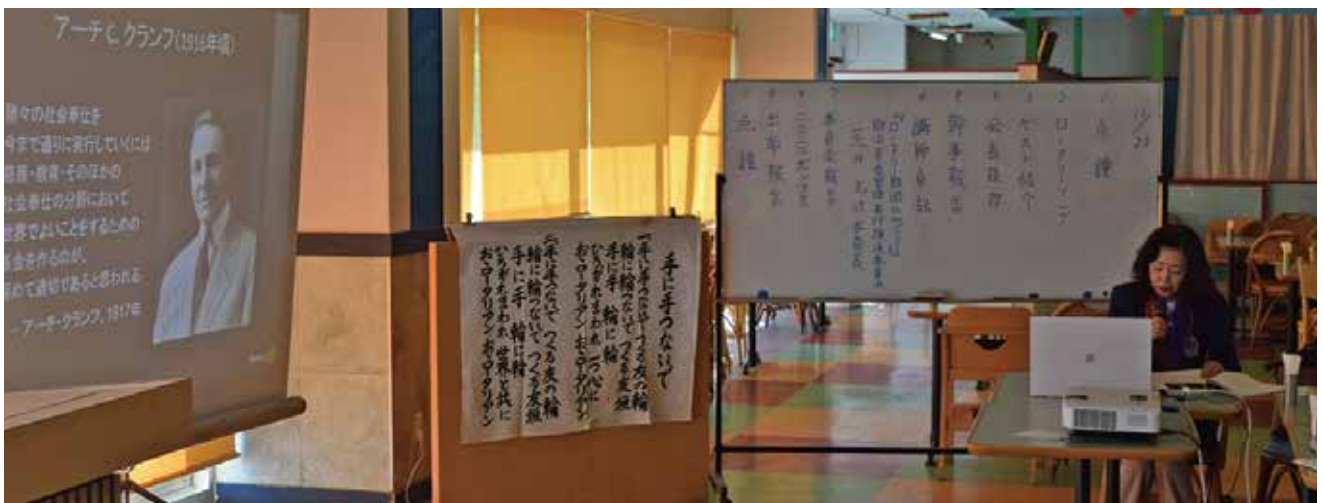 アーチ C. クランフ(1916年頃)
々の社会奉仕を
今まで通りに実行していくには
慈善・教育・そのほかの
社会奉仕の分野において
世界でよいことをするための
基金を作るのが、
極めて適切であると思われる
– アーチ・クランフ, 1917年
手に手つないで
一、手に手つないで つくる友の輪
輪に輪つないで つくる友垣
手に手 輪に輪
ひろがれまわれ 一つ心に
おゝロータリアン おゝロータリアン
二、手に手つないで つくる友の輪
輪に輪つないで つくる友垣
手に手 輪に輪
ひろがれまわれ 世界
おゝロータリアン おゝロータリアン
点鐘
ロータリーソング
ゲスト紹介
会長挨拶
幹事報告
講師卓話
委員会報告
出席報告
点鐘